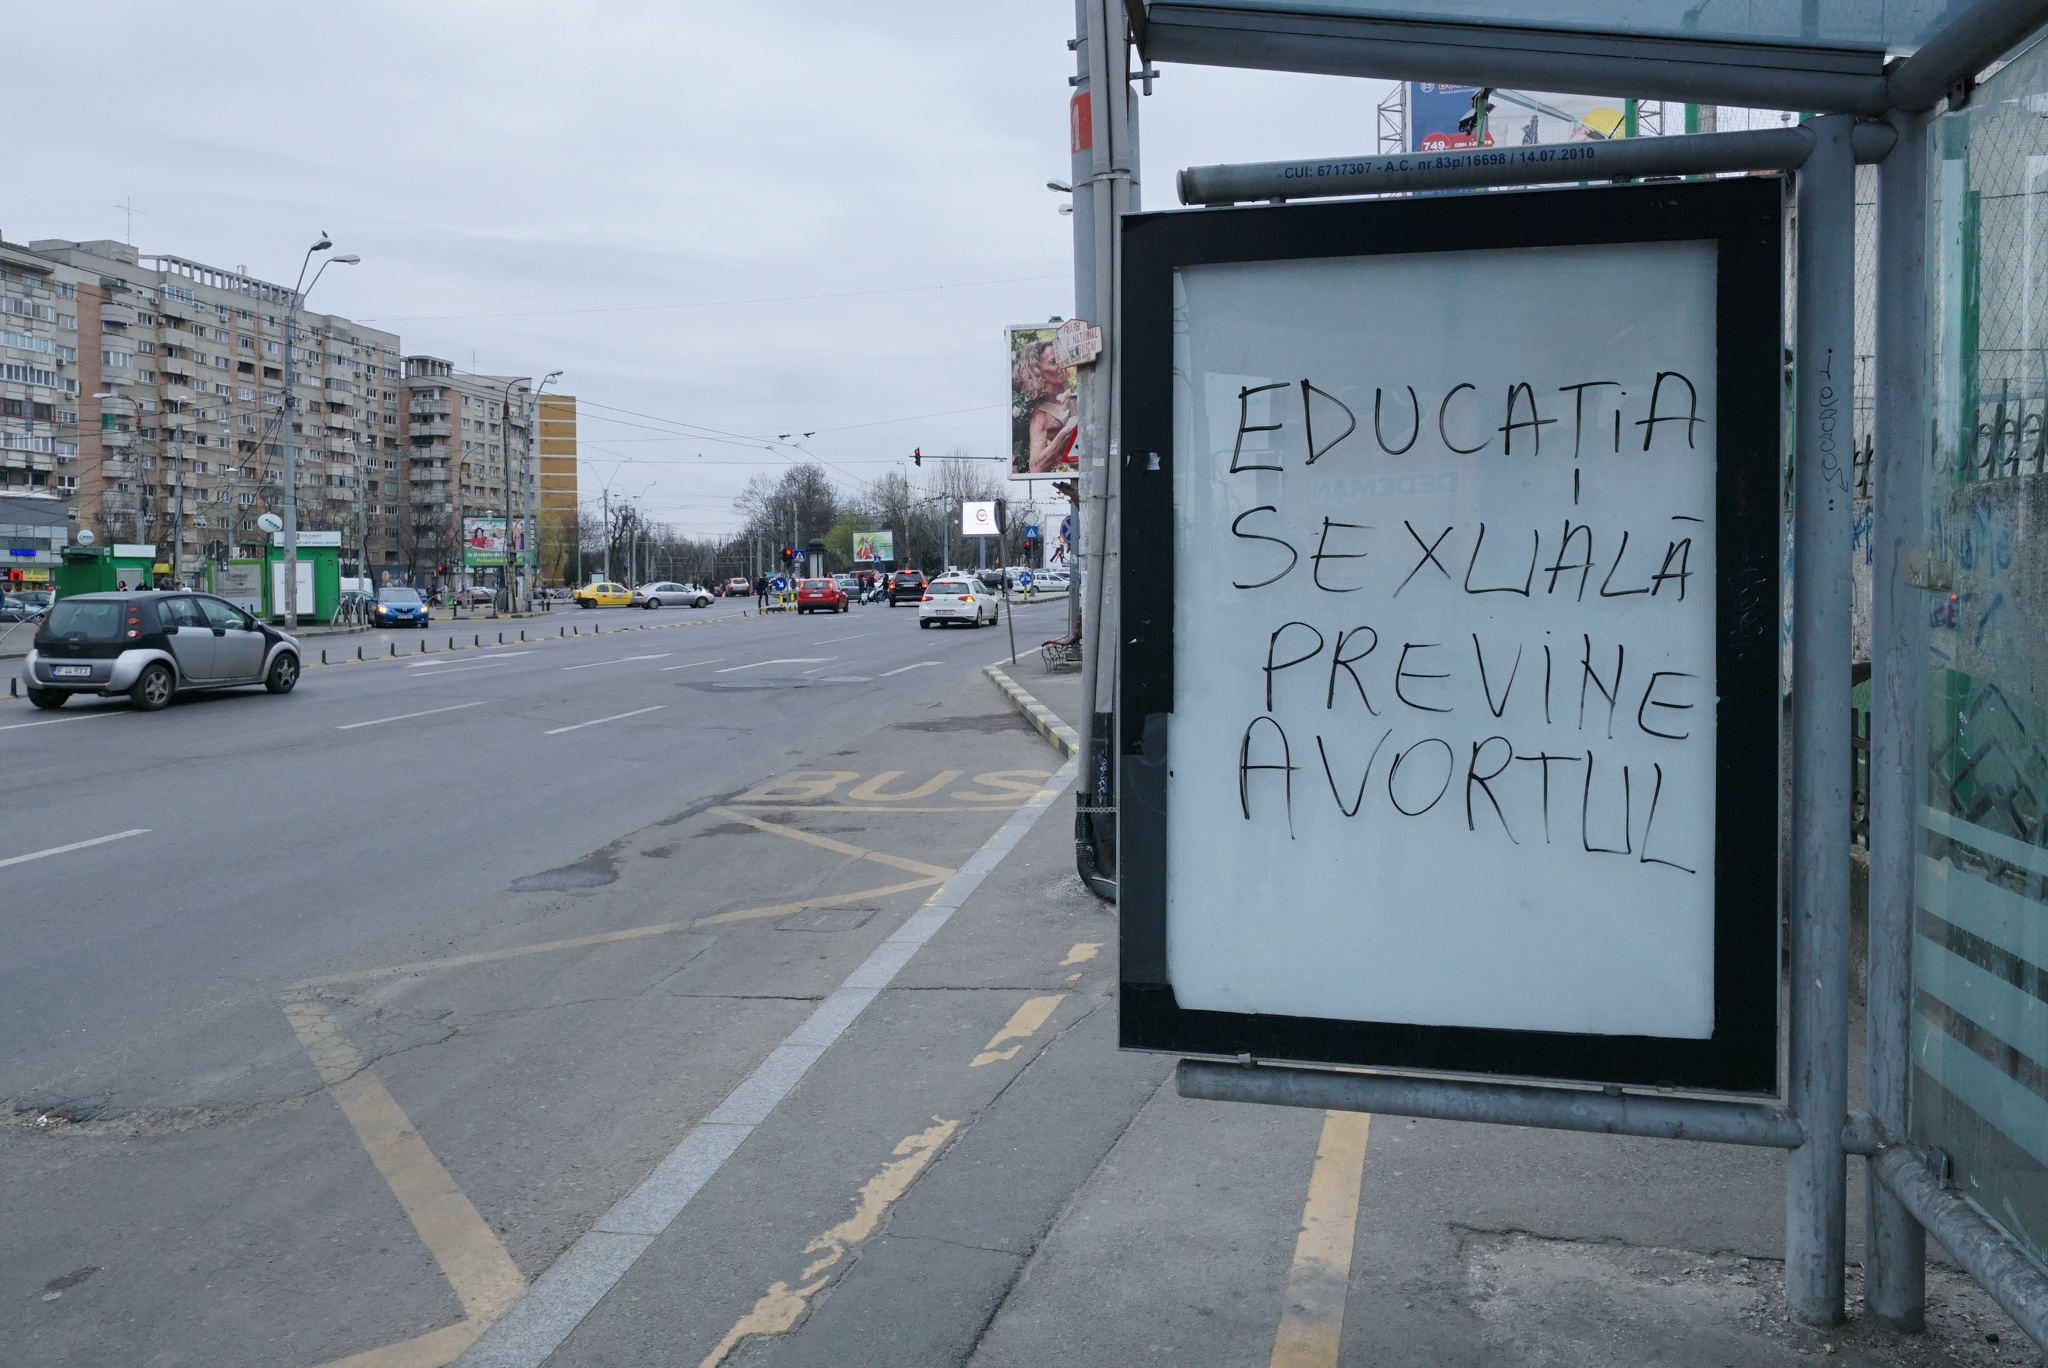 CUI: 6717307 - A.C. nr.83p/16698 / 14.07.2010
EDUCAȚiA
SEXUALĂ
PREViNE
AVORTUL
BUS
749
DEDEMAN